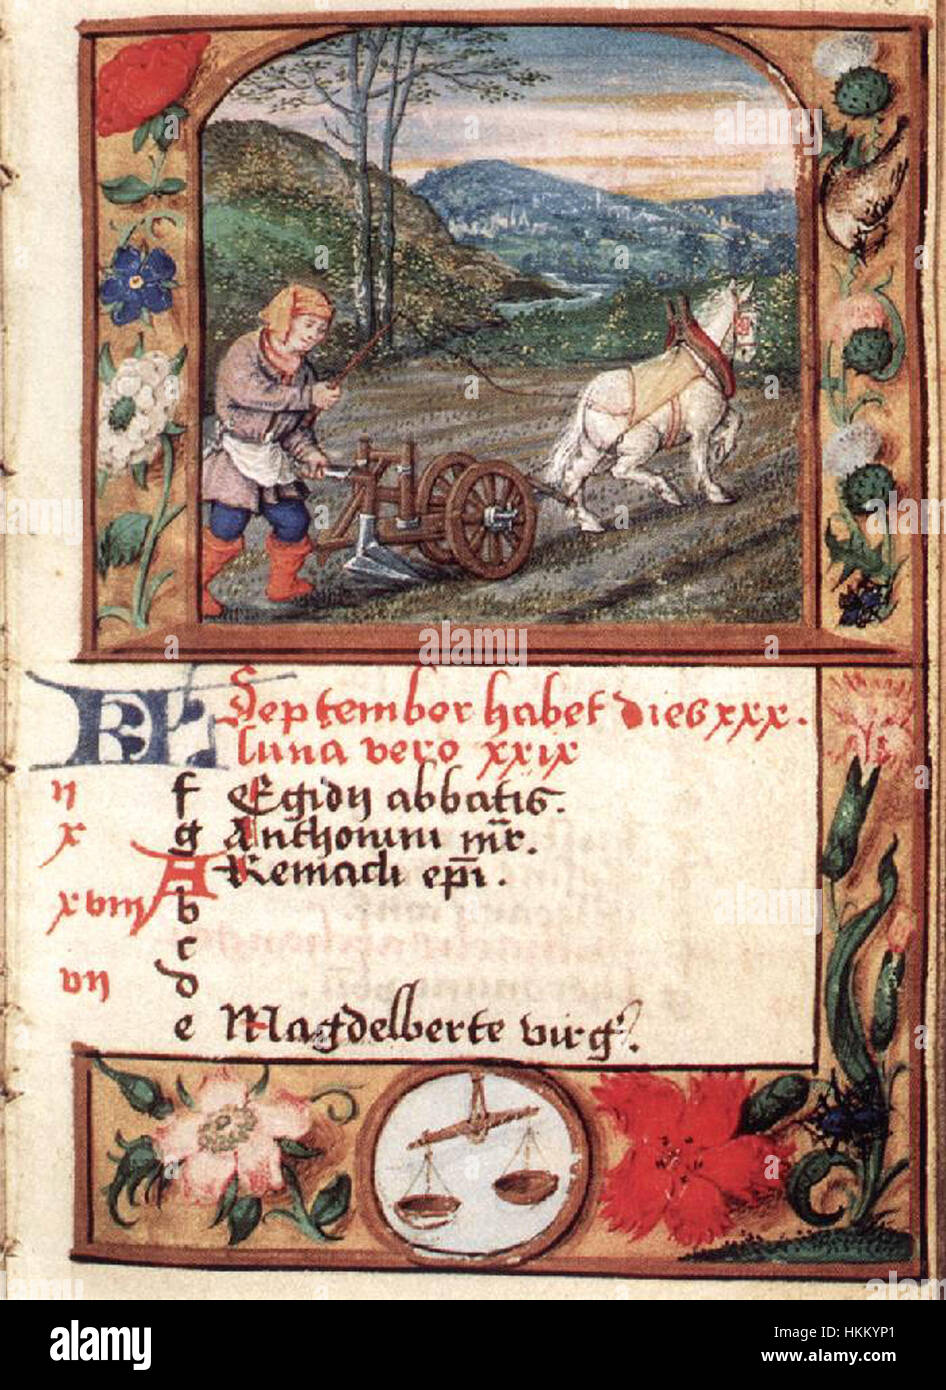 KL September habet dies xxx.
luna vero xxix
n f Egidii abbatis.
x g Anthonini mr.
A Remacli epi.
xviii b
c
vii d
e Magdelberte virg.
a alamy stock photo
alamy
Image ID: HKKYP1
www.alamy.com